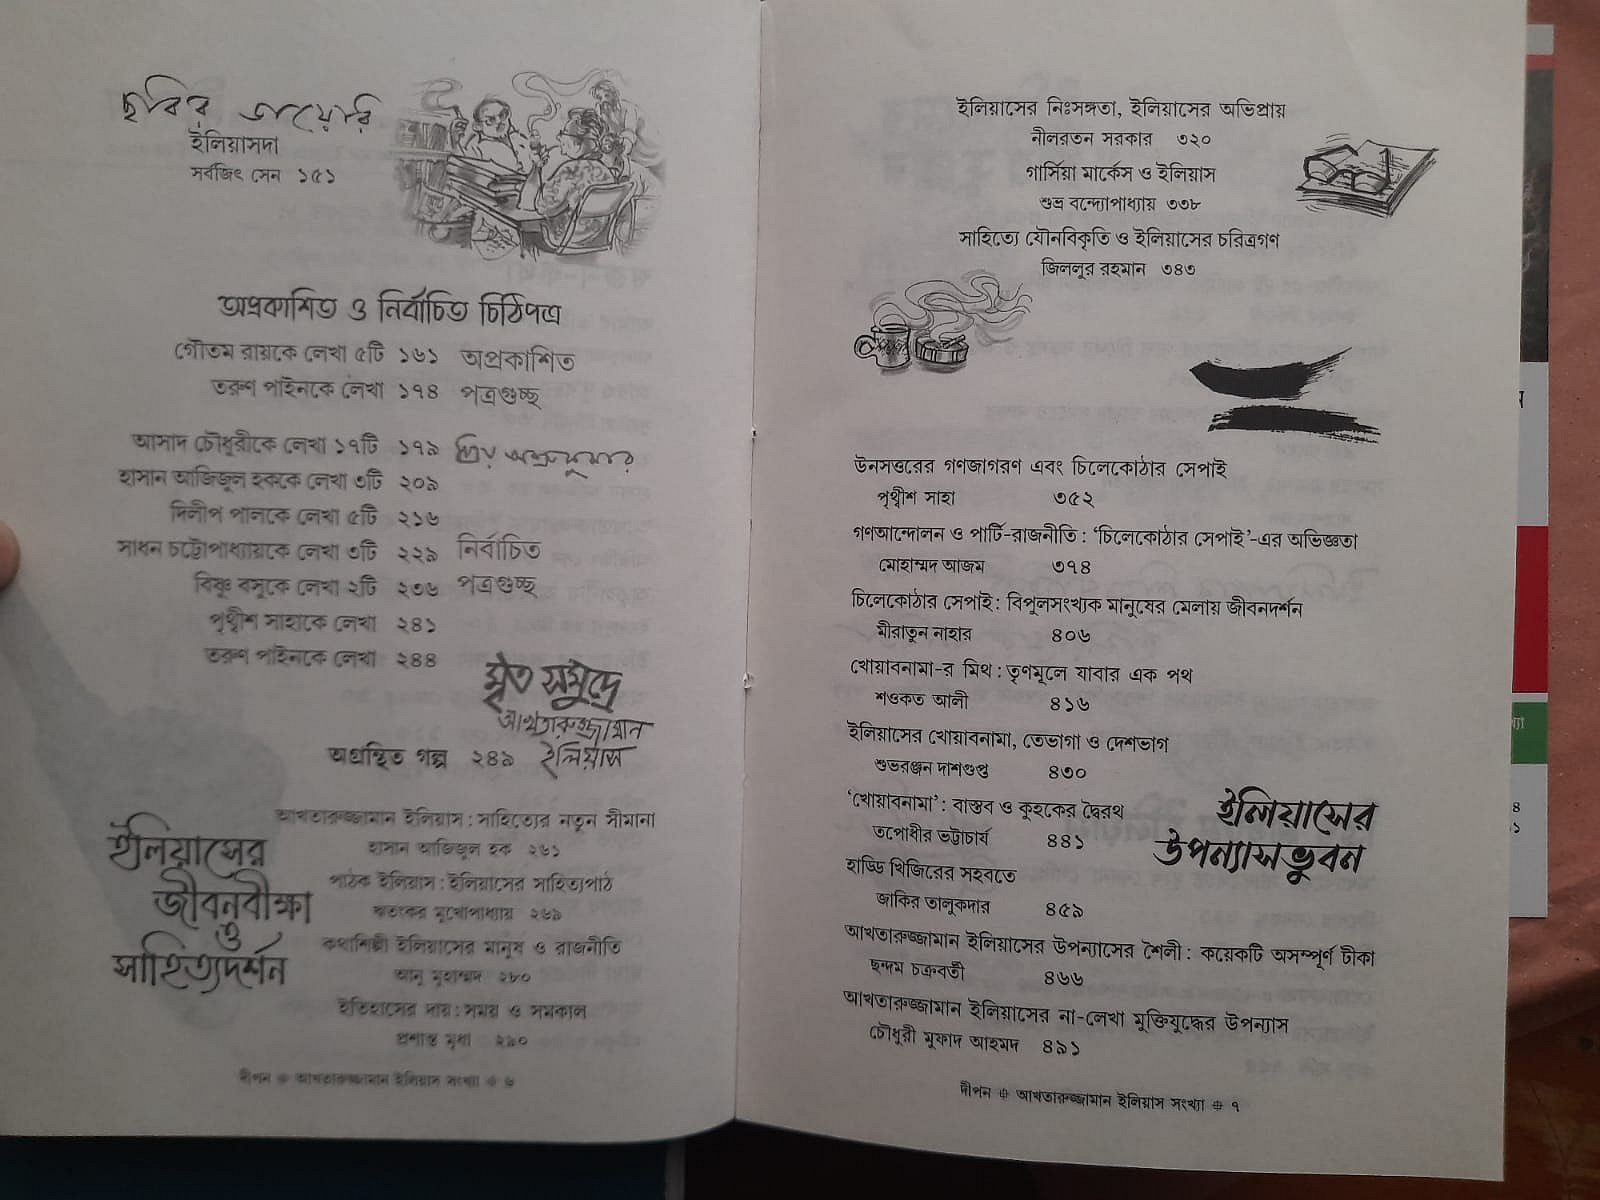 ছবির ডায়েরি
ইলিয়াসদা
সর্বজিৎ সেন ১৫১
অপ্রকাশিত ও নির্বাচিত চিঠিপত্র
গৌতম রায়কে লেখা ৫টি ১৬১ অপ্রকাশিত
তরুণ পাইনকে লেখা ১৭৪ পত্রগুচ্ছ
আসাদ চৌধুরীকে লেখা ১৭টি ১৭৯
হাসান আজিজুল হককে লেখা ৩টি ২০৯
দিলীপ পালকে লেখা ৫টি ২১৬
সাধন চট্টোপাধ্যায়কে লেখা ৩টি ২২৯ নির্বাচিত
বিষ্ণু বসুকে লেখা ২টি ২৩৬ পত্রগুচ্ছ
পৃথ্বীশ সাহাকে লেখা ২৪১
তরুণ পাইনকে লেখা ২৪৪
মৃত সমুদ্রে
আখতারুজ্জামান
অগ্রন্থিত গল্প ২৪৯ ইলিয়াস
ইলিয়াসের
জীবনবীক্ষা
ও
সাহিত্যদর্শন
আখতারুজ্জামান ইলিয়াস : সাহিত্যের নতুন সীমানা
হাসান আজিজুল হক ২৬১
পাঠক ইলিয়াস : ইলিয়াসের সাহিত্যপাঠ
ঋতংকর মুখোপাধ্যায় ২৬৯
কথাশিল্পী ইলিয়াসের মানুষ ও রাজনীতি
আনু মুহাম্মদ ২৮০
ইতিহাসের দায় : সময় ও সমকাল
প্রশান্ত মৃধা ২৯০
দীপন # আখতারুজ্জামান ইলিয়াস সংখ্যা # ৬
ইলিয়াসের নিঃসঙ্গতা, ইলিয়াসের অভিপ্রায়
নীলরতন সরকার ৩২০
গার্সিয়া মার্কেস ও ইলিয়াস
শুভ্র বন্দ্যোপাধ্যায় ৩৩৮
সাহিত্যে যৌনবিকৃতি ও ইলিয়াসের চরিত্রগণ
জিললুর রহমান ৩৪৩
উনসত্তরের গণজাগরণ এবং চিলেকোঠার সেপাই
পৃথ্বীশ সাহা ৩৫২
গণআন্দোলন ও পার্টি-রাজনীতি : ‘চিলেকোঠার সেপাই’-এর অভিজ্ঞতা
মোহাম্মদ আজম ৩৭৪
চিলেকোঠার সেপাই : বিপুলসংখ্যক মানুষের মেলায় জীবনদর্শন
মীরাতুন নাহার ৪০৬
খোয়াবনামা-র মিথ : তৃণমূলে যাবার এক পথ
শওকত আলী ৪১৬
ইলিয়াসের খোয়াবনামা, তেভাগা ও দেশভাগ
শুভরঞ্জন দাশগুপ্ত ৪৩০
‘খোয়াবনামা’ : বাস্তব ও কুহকের দ্বৈরথ
তপোধীর ভট্টাচার্য ৪৪১
হাড্ডি খিজিরের সহবতে
জাকির তালুকদার ৪৫৯
আখতারুজ্জামান ইলিয়াসের উপন্যাসের শৈলী : কয়েকটি অসম্পূর্ণ টীকা
ছন্দম চক্রবর্তী ৪৬৬
আখতারুজ্জামান ইলিয়াসের না-লেখা মুক্তিযুদ্ধের উপন্যাস
চৌধুরী মুফাদ আহমদ ৪৯১
ইলিয়াসের
উপন্যাসভুবন
দীপন # আখতারুজ্জামান ইলিয়াস সংখ্যা # ৭